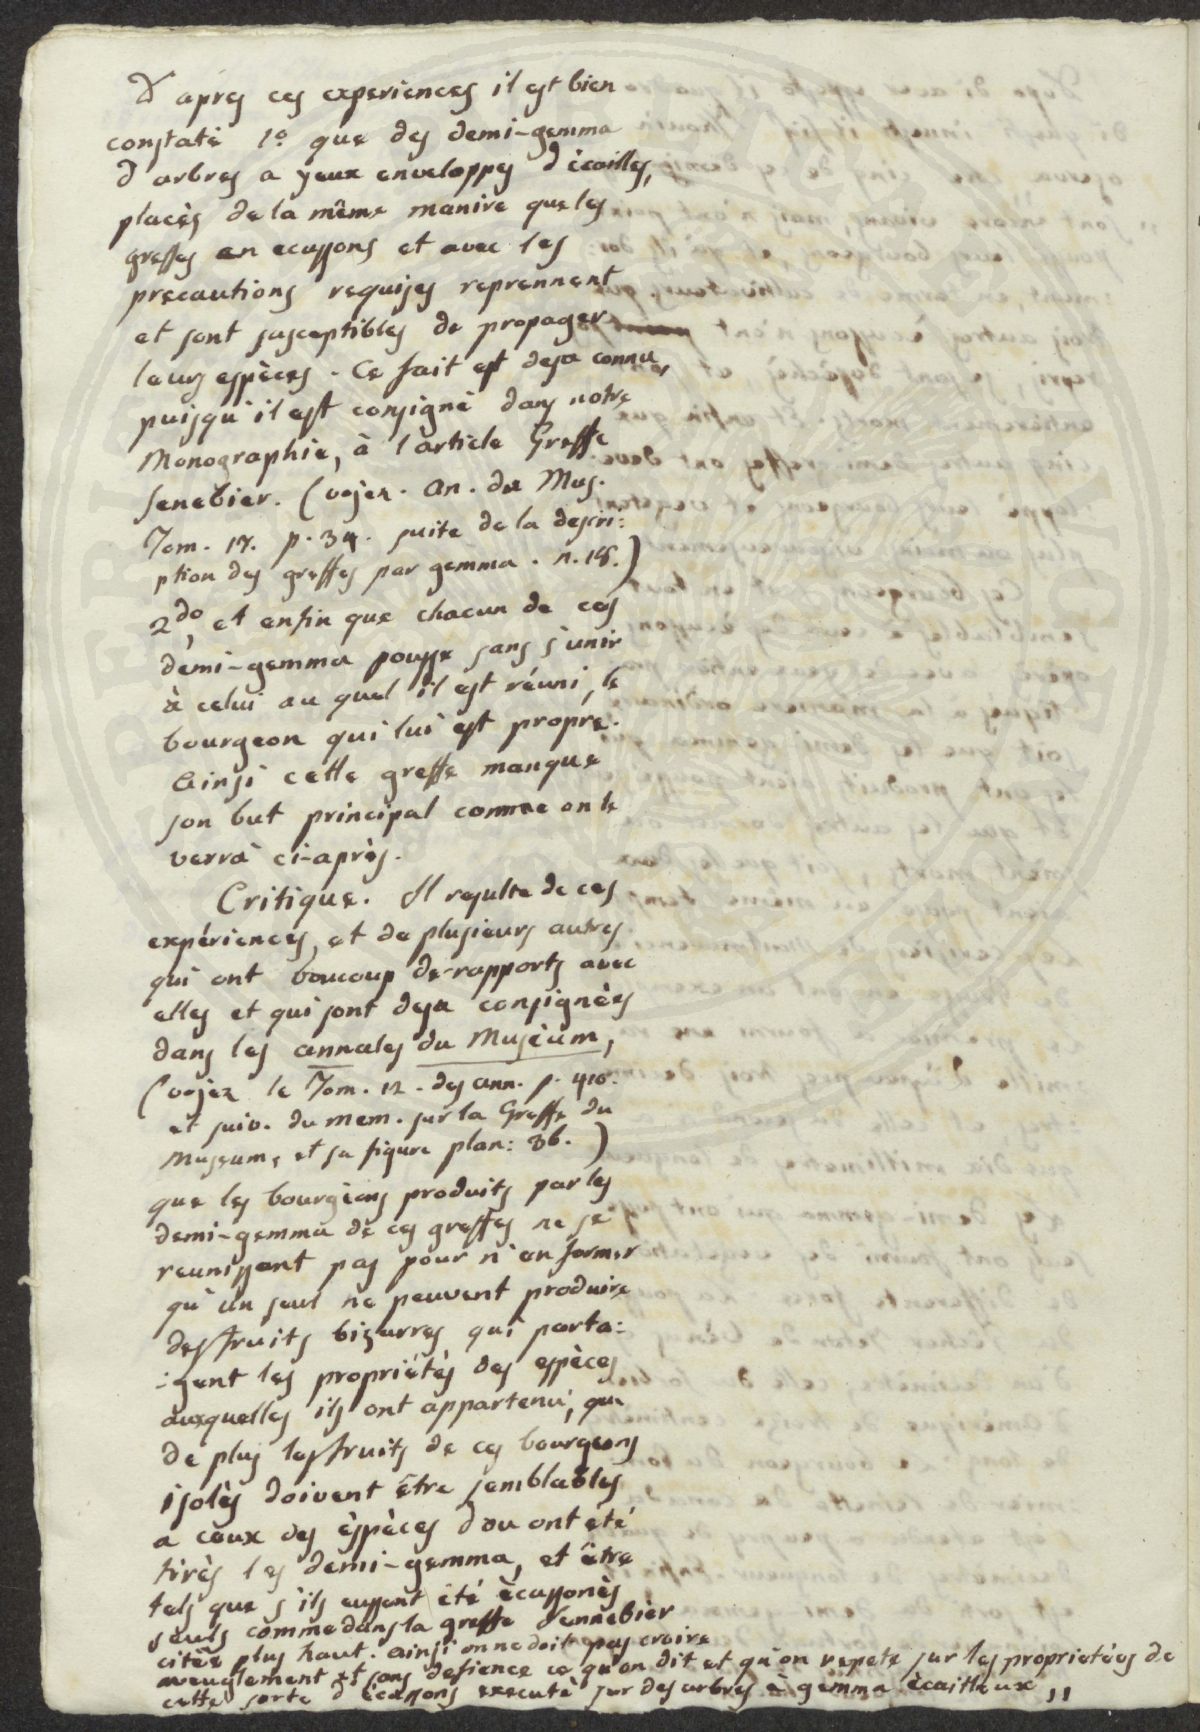 D'apres ces experiences il est bien
constaté 1.o que des demi-gemma
d'arbres a yeux enveloppes d'écailles,
placès de la même manire que les
greffes en ecussons et avec les
precautions requises reprennent
et sont susceptibles de propager
leurs espèces. Ce fait est deja connu,
puisqu'il est consigné dans notre
Monographie, à l'article Greffe
Senebier. (vojez. An. du Mus.
Tom. 17. p. 34. suite de la descri:
ption des greffes par gemma. n. 18.)
2do, et enfin que chacun de ces
demi-gemma pousse sans s'unir
à celui au quel il est réuni, le
bourgeon qui lui est propre.
Ainsi cette greffe manque
son but principal comme on le
verra ci-après.
Critique. Il resulte de ces
expériences, et de plusieurs autres
qui ont boucoup de rapports avec
elles et qui sont deja consignées
dans les annales du Muséum,
(vojez le Tom. 12. des ann. p. 410.
et suiv. du mem. sur la Greffe du
Museum, et sa figure plan: 36.)
que les bourgèons produits par les
demi-gemma de ces greffes ne se
reunissant pas pour n'en former
qu'un seul ne peuvent produire
des fruits bizarres qui parta:
:gent les propriétés des espèces
auxquelles ils ont appartenu, que
de plus les fruits de ces bourgeons
isolès doivent être semblables
a ceux des èspèces d'ou ont eté
tirès les demi-gemma, et être
tels que s'ils eussent été ècussonès
seuls comme dans la greffe Sennebier
citée plus haut. Ainsi on ne doit pas croire
aveuglement et sans defience ce qu'on dit et qu'on repete sur les proprietées de
cette sorte d'Ecussons executè sur des arbres à gemma écailleux ,,